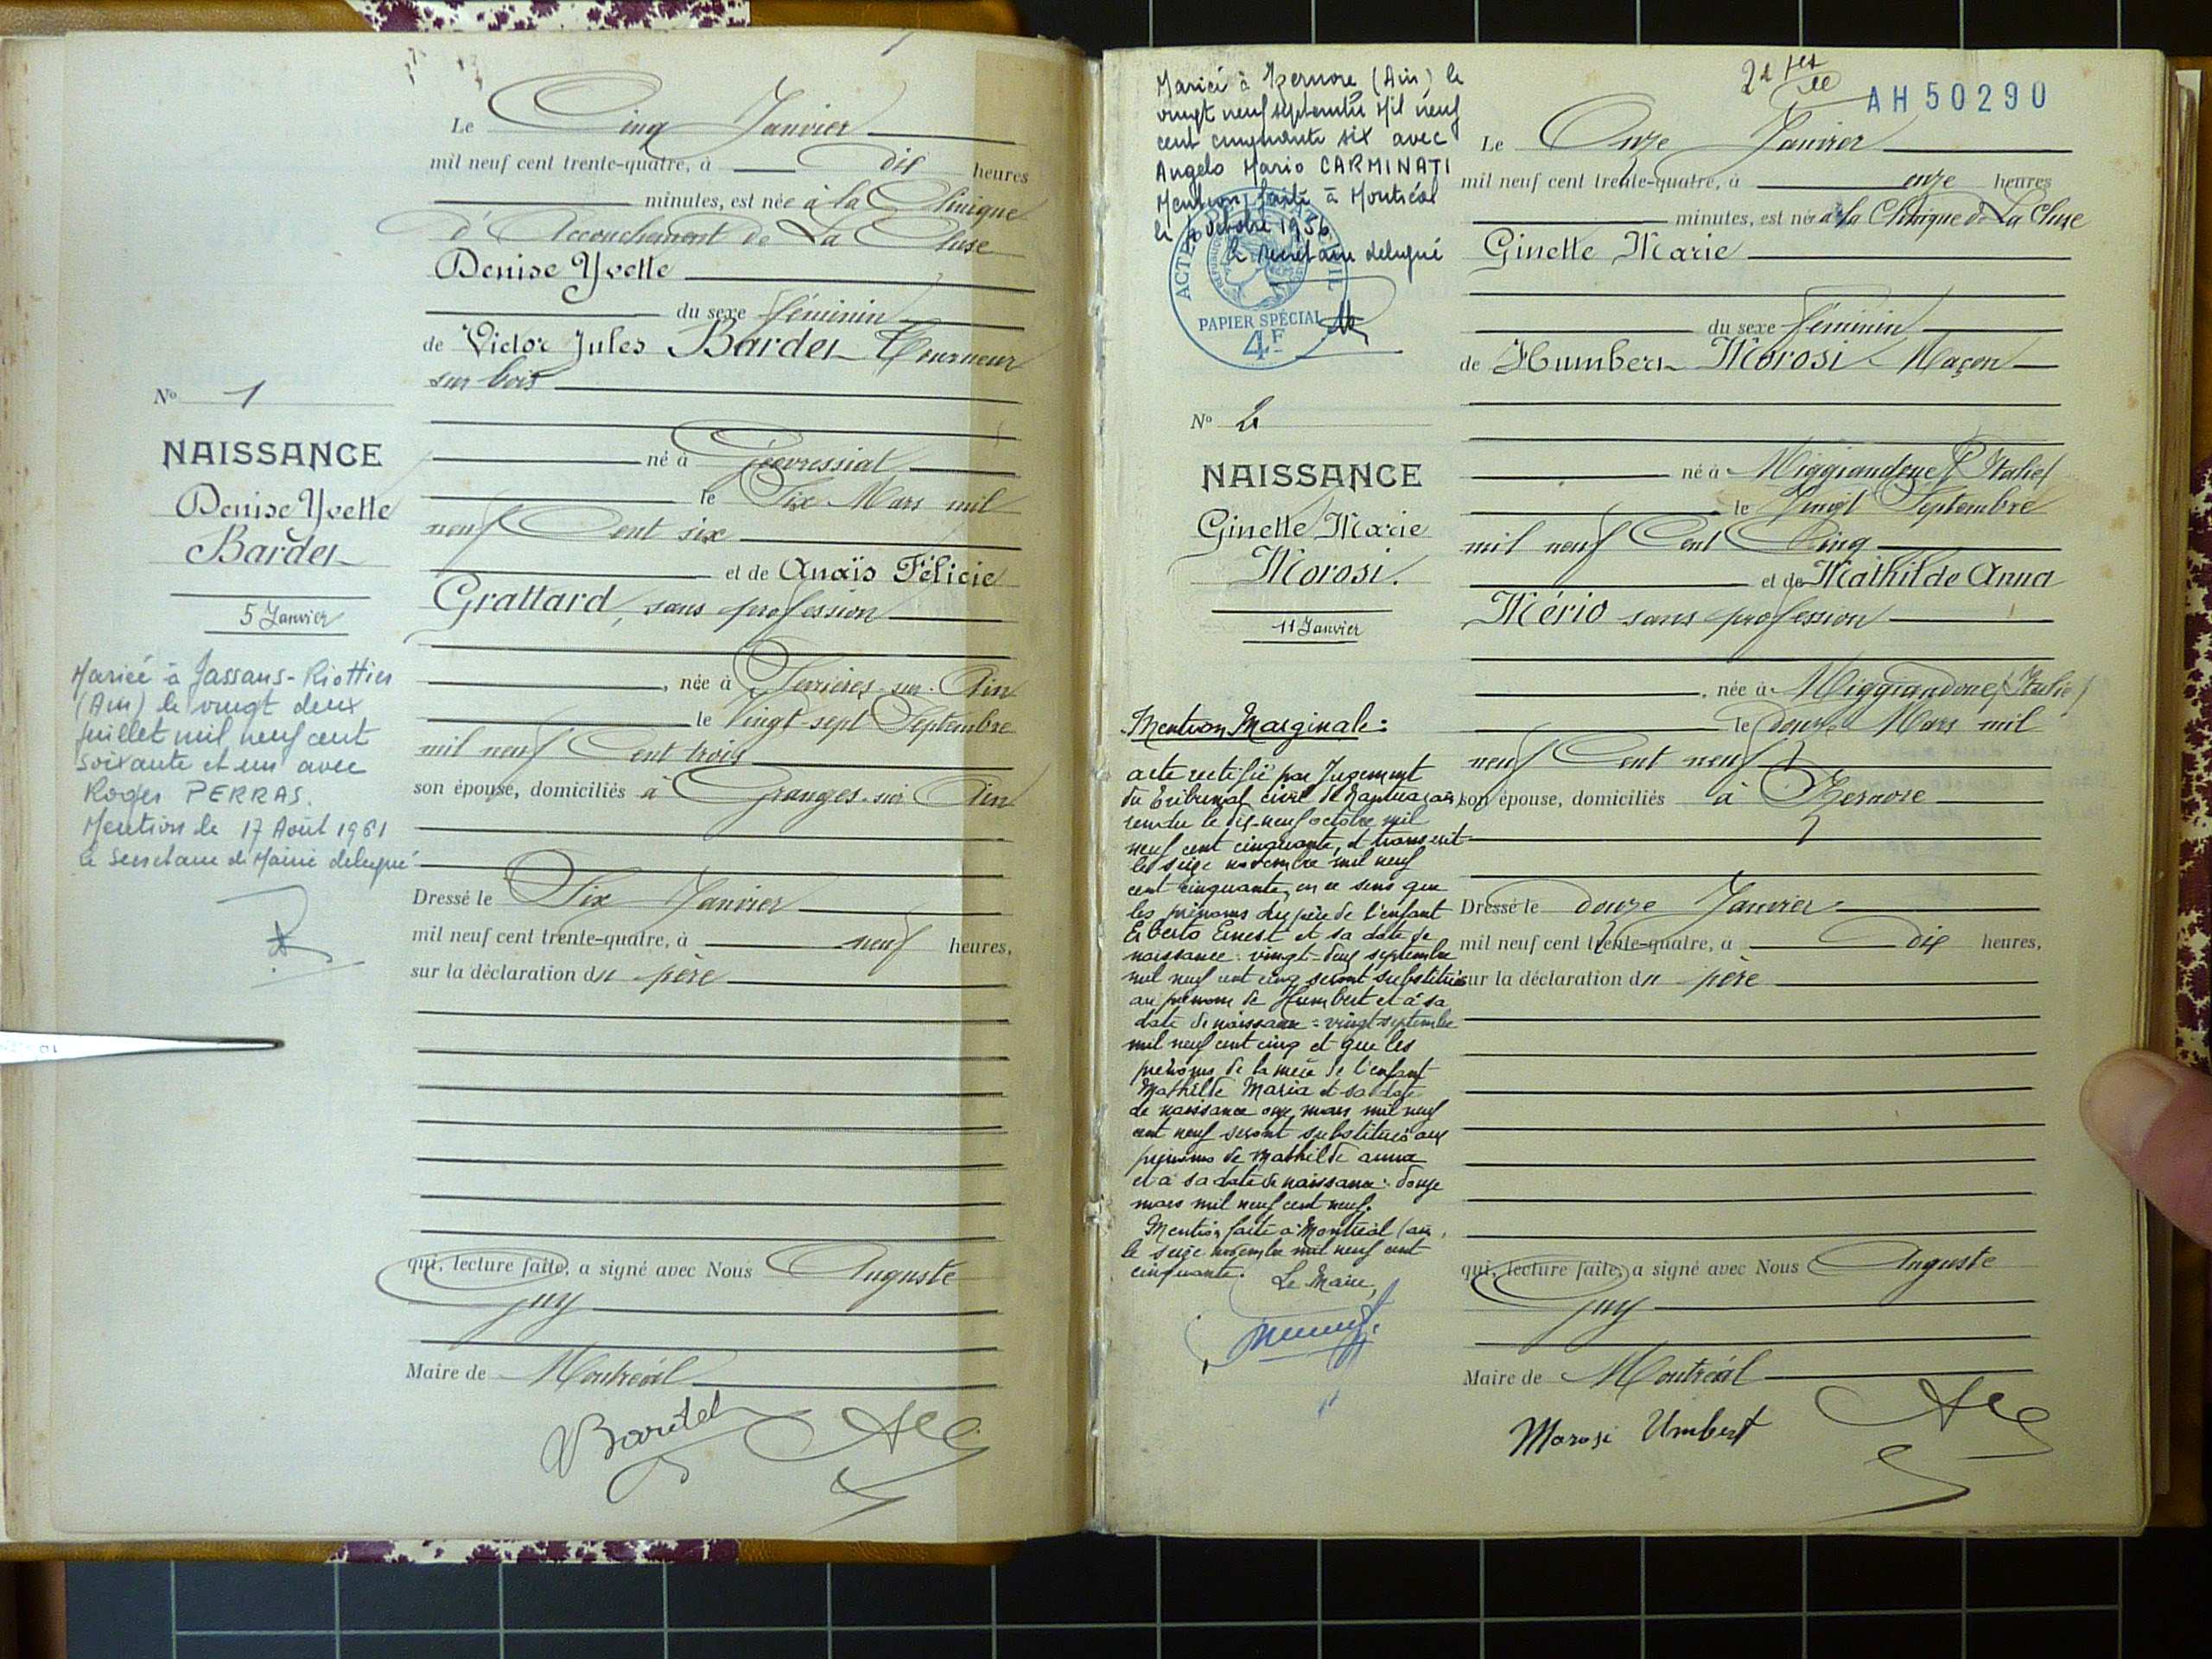 Le Cinq Janvier
mil neuf cent trente-quatre, à dix heures
minutes, est née à la Clinique
d'Accouchement de La Cluse
Denise Yvette
du sexe féminin
de Victor Jules Bardet Tourneur
sur bois
né à Géovressiat
le Six Mars mil
neuf Cent six
et de Anaïs Félicie
Grattard, sans profession
, née à Serrières-sur-Ain
le Vingt-sept Septembre
mil neuf Cent trois
son épouse, domiciliés à Granges-sur-Ain
Dressé le Six Janvier
mil neuf cent trente-quatre, à neuf heures,
sur la déclaration du père
qui, lecture faite, a signé avec Nous Auguste
Guy
Maire de Montréal
No 1
NAISSANCE
Denise Yvette
Bardet
5 Janvier
Mariée à Jassans-Riottier
(Ain) le vingt deux
juillet mil neuf cent
soixante et un avec
Roger PERRAS.
Mention le 17 Août 1961
le secrétaire de Mairie délégué
AH 50290
Mariée à Izernore (Ain) le
vingt neuf septembre mil neuf
cent cinquante six avec
Angelo Mario CARMINATI
Mention faite à Montréal
le octobre 1956
le secrétaire délégué
PAPIER SPÉCIAL
4F
No 2
NAISSANCE
Ginette Marie
Morosi.
11 Janvier
Mention Marginale :
acte rectifié par Jugement
du Tribunal civil de Nantua (ain)
rendu le dix-neuf octobre mil
neuf cent cinquante, et transcrit
le seize novembre mil neuf
cent cinquante, en ce sens que
les prénoms du père de l'enfant
Ernest et sa date de
naissance : vingt-deux septembre
mil neuf cent cinq seront substitués
au prénom de Humbert et à sa
date de naissance : vingt septembre
mil neuf cent cinq et que les
prénoms de la mère de l'enfant
Mathilde Maria et sa date
de naissance onze mars mil neuf
cent neuf seront substitués aux
prénoms de Mathilde anna
et à sa date de naissance : douze
mars mil neuf cent neuf.
Mention faite à Montréal (ain,
le seize novembre mil neuf cent
cinquante.
Le Maire,
Le Onze Janvier
mil neuf cent trente-quatre, à onze heures
minutes, est née à la Clinique de La Cluse
Ginette Marie
du sexe féminin
de Humbert Morosi Maçon
né à Miggiandone (Italie)
le Vingt Septembre
mil neuf Cent Cinq
et de Mathilde Anna
Mério sans profession
, née à Miggiandone (Italie)
le douze Mars mil
neuf Cent neuf
son épouse, domiciliés à Izernore
Dressé le douze Janvier
mil neuf cent trente-quatre, à dix heures,
sur la déclaration du père
qui, lecture faite, a signé avec Nous Auguste
Guy
Maire de Montréal
Morosi Umbert